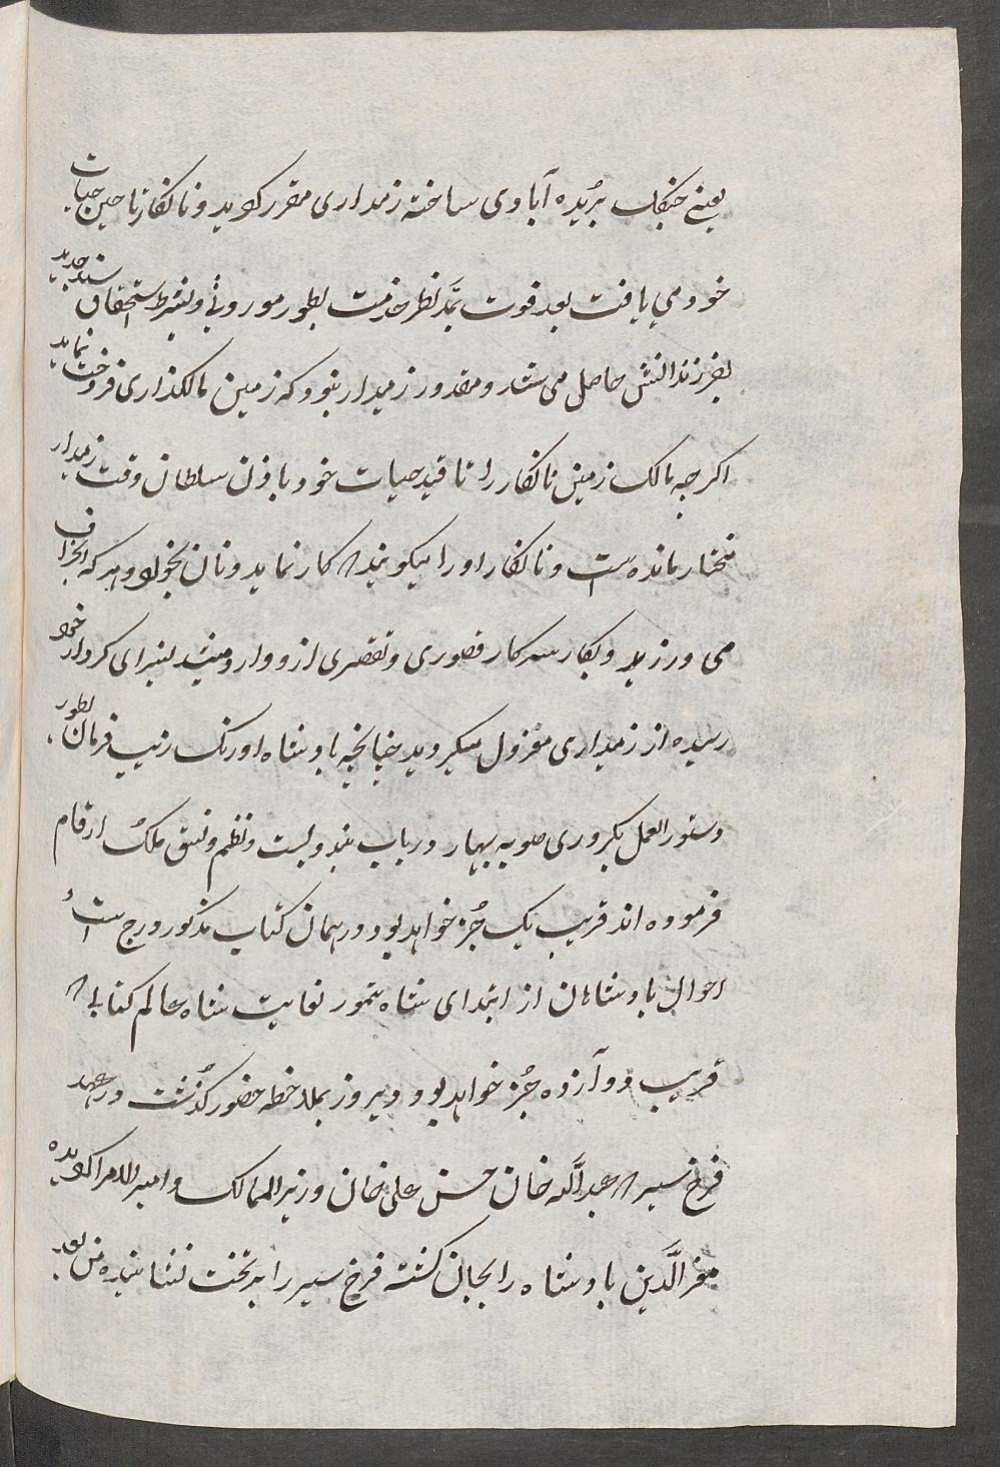 یعنے جنگل بُریده آبادی ساخته زمداری مقرر کردید و نانکار تا حین حیات
خود می یافت بعد فوت بمد نظر خدمت بطور موروثے و بشرط استحقاق سند جدید
بفرزندانش حاصل می شد و مقدور زمیدار نبود که زمین مالکذاری فروخت نماید
اکرچه مالک زمین نانکار را تا قید حیات خود باذن سلطان وقت زمیدار
مختار مانده است و نانکار اورا میکویند که کار نماید و نان بخورد و هر که انحراف
می ورزید و بکار سرکار قصوری و تقصری ازو وارد میشد بسزای کردار خود
رسیده از زمیداری معزول میکردید چنانچه بادشاه اورنک زیب فرمان بطور
دستورالعمل بکروری صوبه بهار در باب بندوبست و نظم و نسق ملک ارقام
فرموده اند قریب یک جُز خواهد بود در همان کتاب مذکور درج است
احوال بادشاهان از ابتدای شاه تیمور لغایت شاه عالم کتابے که
قریب دوآزده جُز خواهد بود دیروز بملاحظه حضور کُذشت در عهد
فرخ سیر که عبداللّه خان حسن علی خان وزیر الممالک و امیرالامرا کردیده
معزالدّین بادشاه را بجان کشته فرخ سیر را بر تخت نشانیده من بعد